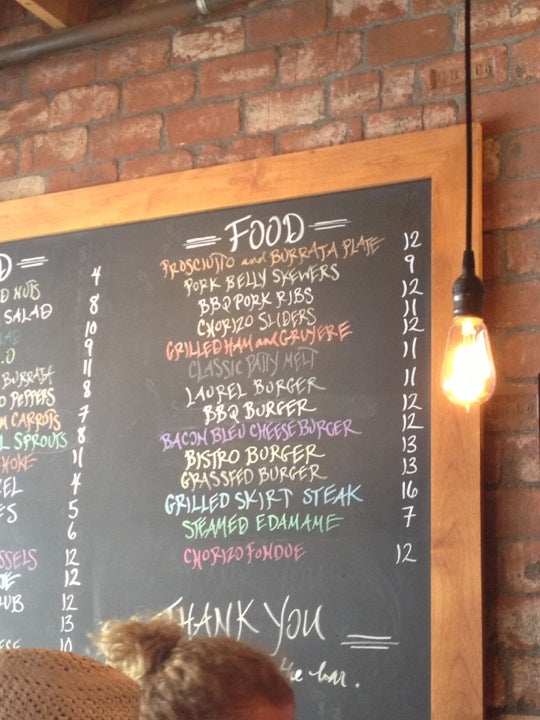 D
D NUTS 4
SALAD 8
AD 10
.O 9
BURRATA 11
O PEPPERS 8
M CARROTS 7
L SPROUTS 8
HOKE 11
EL 4
ES 5
6
SSELS 12
TE 12
UB 12
13
ESE 10
FOOD
PROSCIUTTO and BURRATA PLATE 12
PORK BELLY SKEWERS 9
BBQ PORK RIBS 12
CHORIZO SLIDERS 11
GRILLED HAM and GRUYERE 12
CLASSIC PATTY MELT 11
LAUREL BURGER 11
BBQ BURGER 12
BACON BLEU CHEESEBURGER 12
BISTRO BURGER 13
GRASSFED BURGER 13
GRILLED SKIRT STEAK 16
STEAMED EDAMAME 7
CHORIZO FONDUE 12
THANK YOU
the bar.